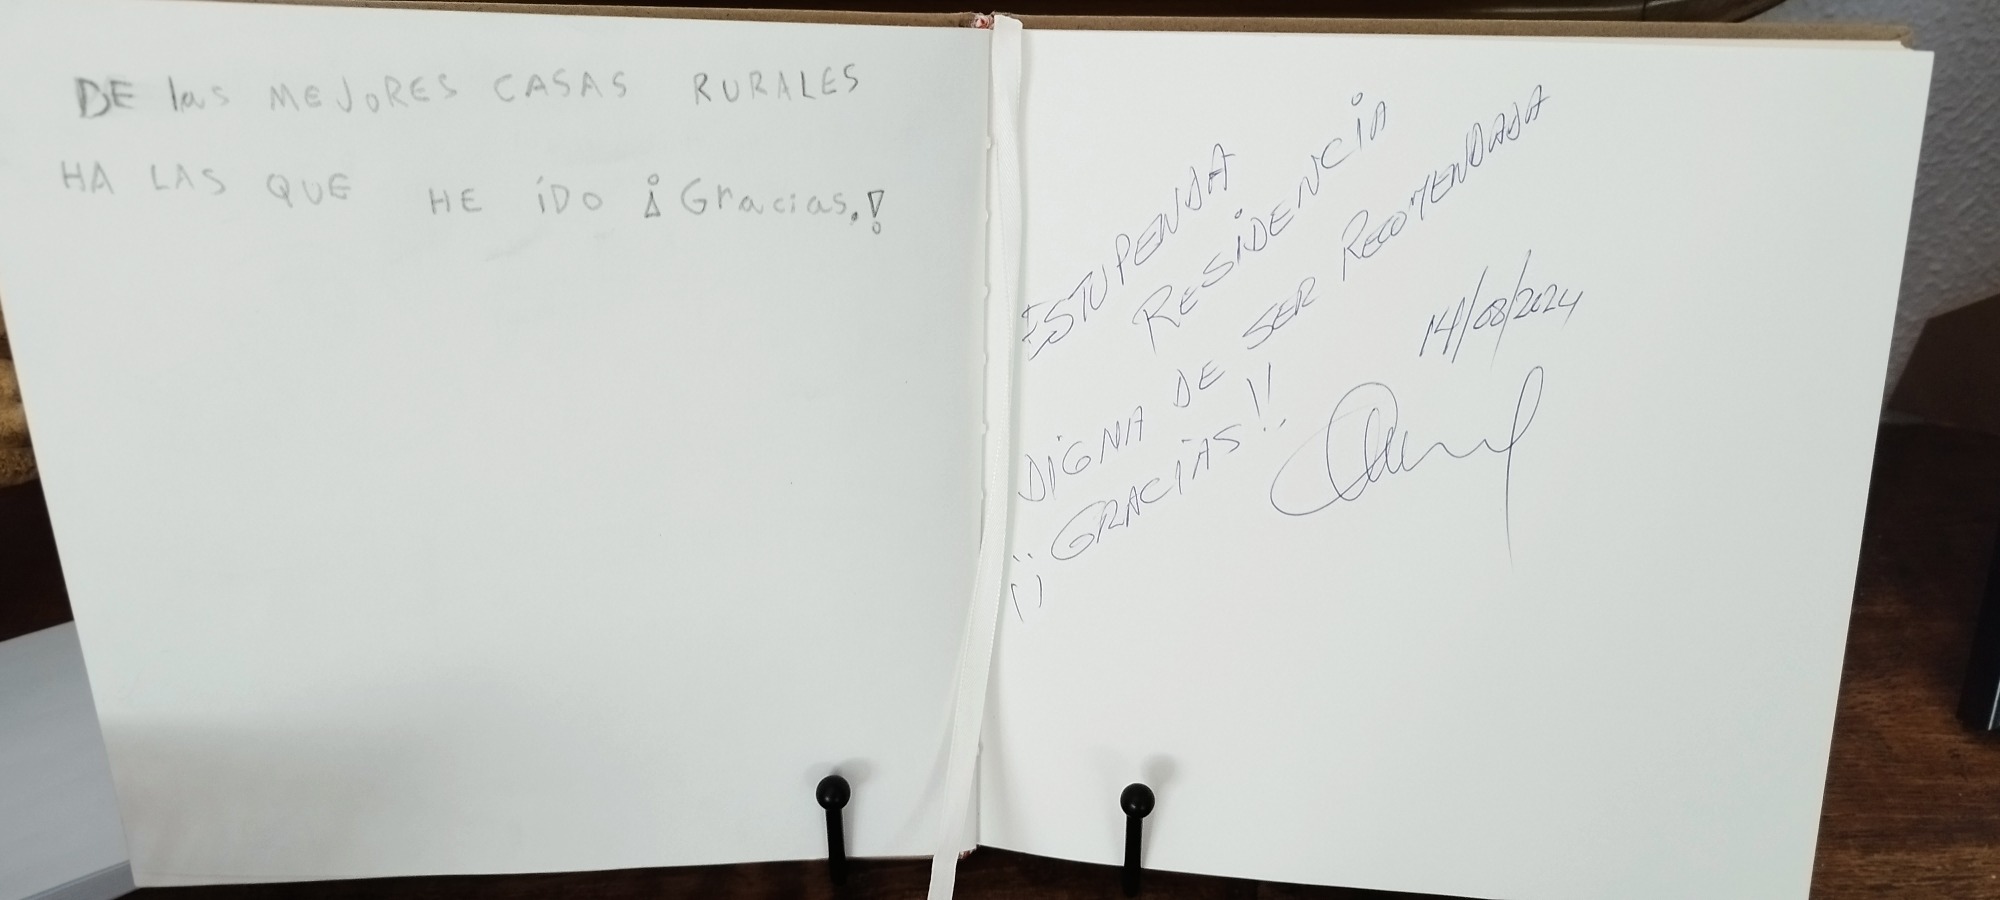 DE las MEJORES CASAS RURALES
HA LAS QUE HE IDO ¡Gracias,!
ESTUPENDA
RESIDENCIA
DIGNA DE SER RECOMENDADA
¡¡GRACIAS!!
14/08/2024